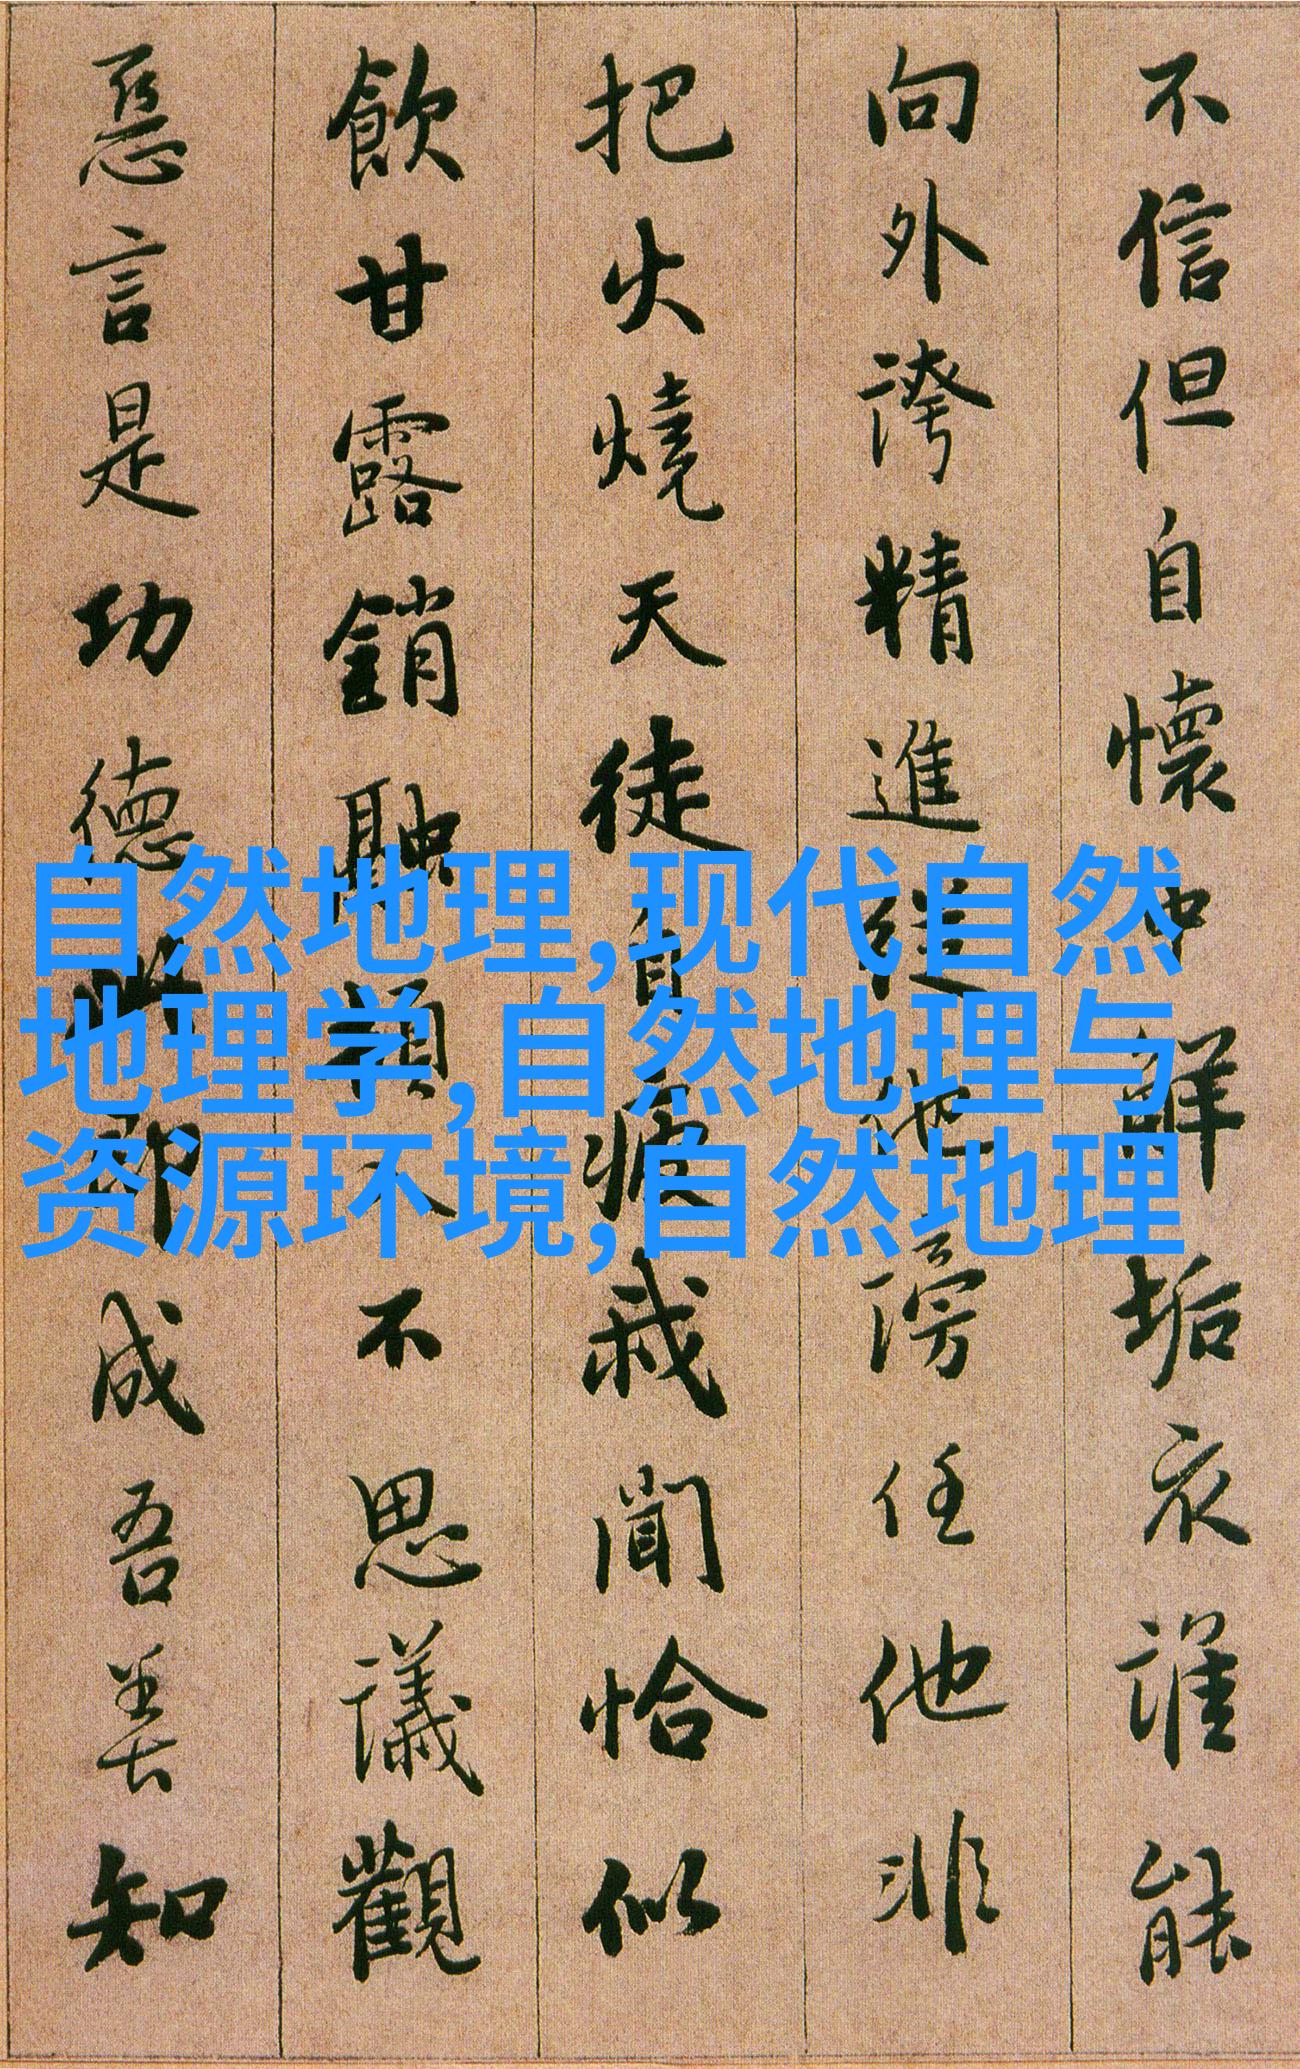 不信但自懷中解垢衣誰能
向外誇精進從他謗任他非
把火燒天徒自疲我聞恰似
飲甘露銷融頓入不思議觀
惡言是功德此即成吾善知
自然地理,现代自然
地理学,自然地理与
资源环境,自然地理